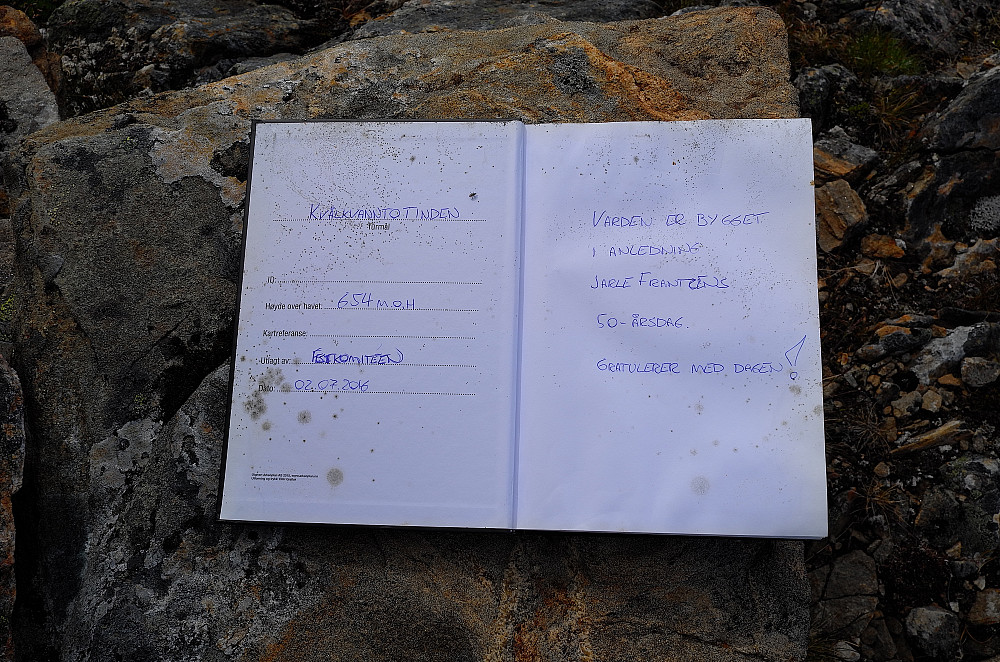 KVALKVANNTOTINDEN
Turmål
ID:
Høyde over havet: 654 M.O.H.
Kartreferanse:
Utlagt av: FESTKOMITEEN
Dato: 02.07.2016
VARDEN ER BYGGET
I ANLEDNING
JARLE FRANTZENS
50-ÅRSDAG.
GRATULERER MED DAGEN!